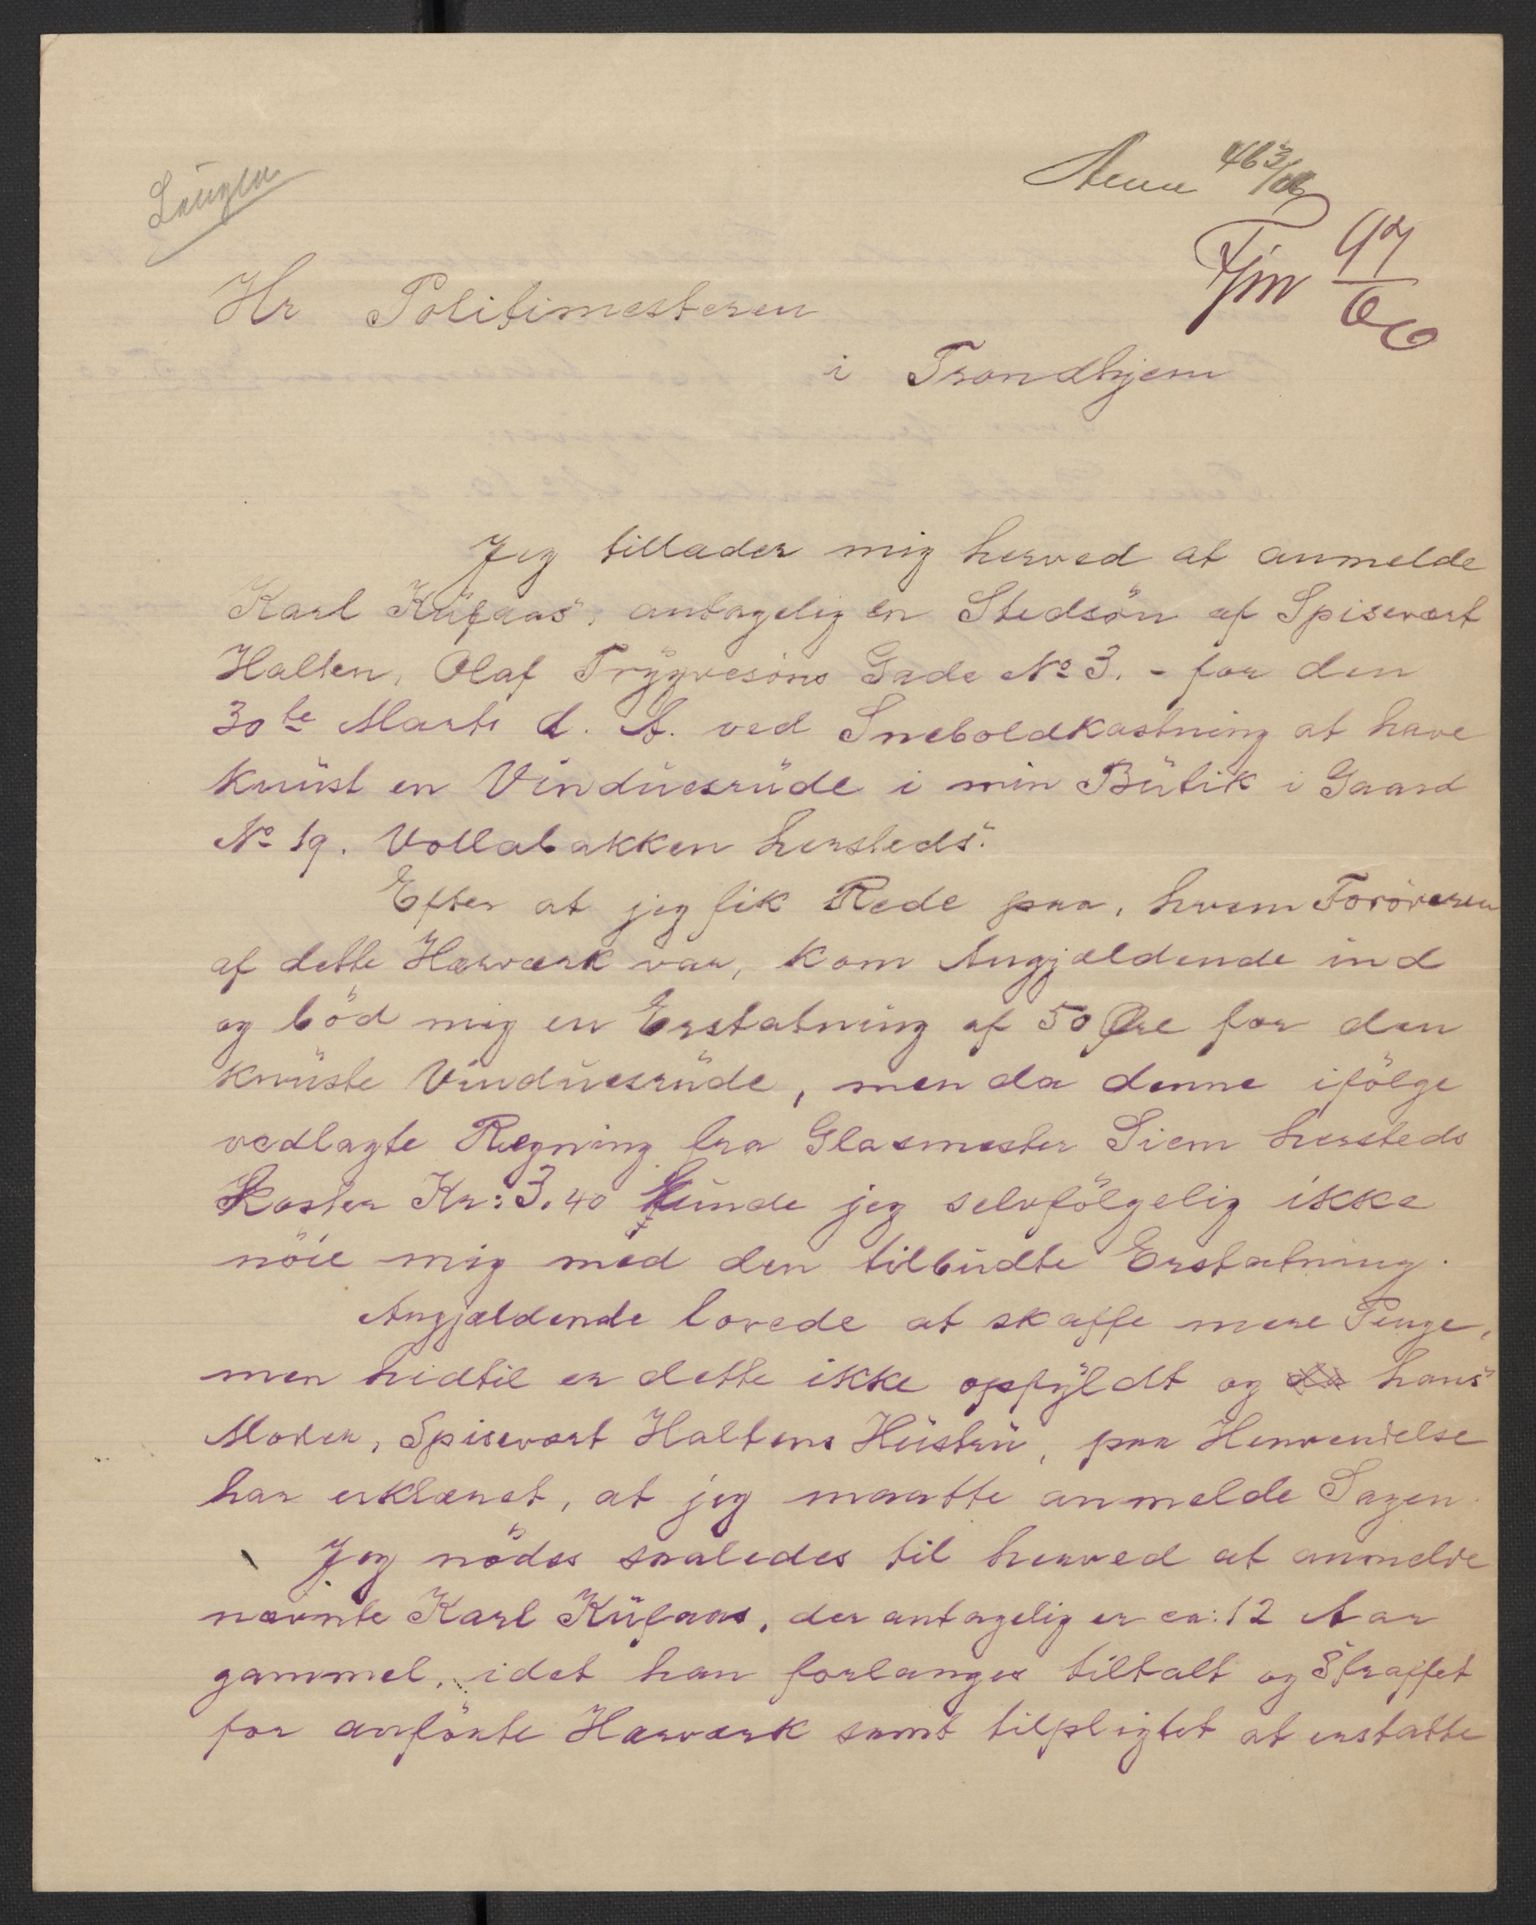 Anm 463/06
Hr Politimesteren
i Trondhjem
Jeg tillader mig herved at anmelde
Karl Küfaas, antagelig en Stedsön af Spisevært
Halten, Olaf Tryggvesöns Gade No 3. - for den
30te Marts d. A. ved Sneboldkastning at have
knust en Vinduesrude i min Butik i Gaard
No 19. Vollabakken hersteds.
Efter at jeg fik Rede paa, hvem Forøveren
af dette Hærværk var, kom Angjældende ind
og böd mig en Erstatning af 50 Øre for den
knuste Vinduesrude, men da denne ifölge
vedlagte Regning fra Glasmester Siem hersteds
koster Kr: 3.40 kunde jeg selvfölgelig ikke
nöie mig med den tilbudte Erstatning.
Angjældende lovede at skaffe mere Penge,
men hidtil er dette ikke opfyldt og hans
Moder, Spisevært Haltens Hustru, paa Henvendelse
har erklæret, at jeg maatte anmelde Sagen.
Jeg nödes saaledes til herved at anmelde
nævnte Karl Küfaas, der antagelig er ca: 12 Aar
gammel, idet han forlanges tiltalt og Straffet
for anförte Hærværk samt tilpligtet at erstatte